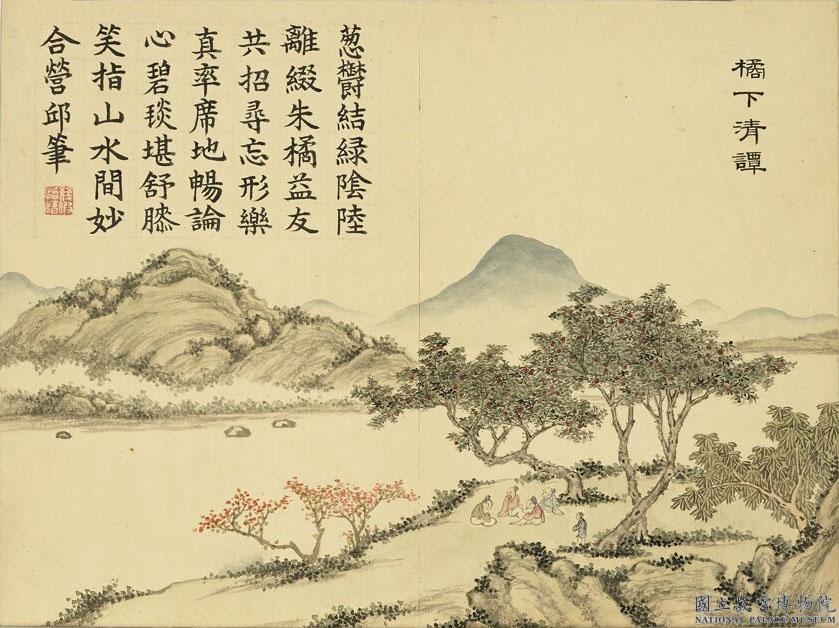 橘下清譚
葱欝結緑陰陸
離綴朱橘益友
共招尋忘形樂
真率席地暢論
心碧琰堪舒膝
笑指山水間妙
合營邱筆
國立故宮博物院
NATIONAL PALACE MUSEUM